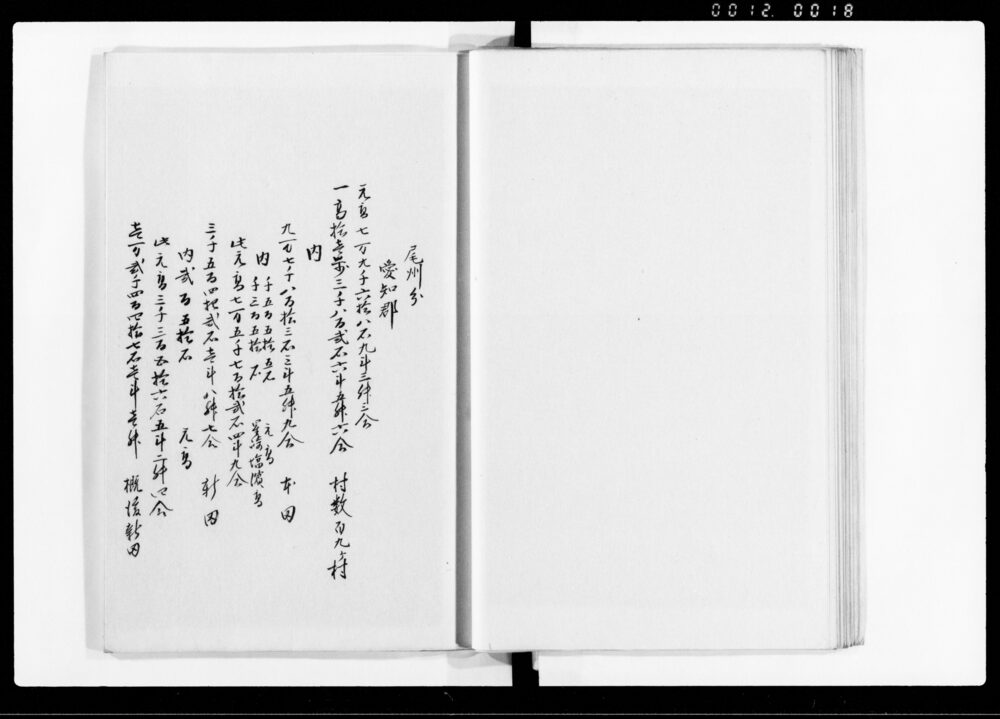 0012. 0018
尾州分
愛知郡
元高七万九千六拾八石九斗三升三合
一高拾壱万三千八百弐石六斗五升六合 村数百九ヶ村
内
九万七千八百拾三石三斗五升九合 本田
内 千五百五拾五石 元高
千三百五拾石 星崎塩浜高
此元高七万五千七百拾弐石四斗九合
三千五百四拾弐石壱斗八升七合 新田
内弐百五拾石 元高
此元高三千三百五拾六石五斗二升四合
壱万弐千四百四拾七石壱斗壱升 概俊新田